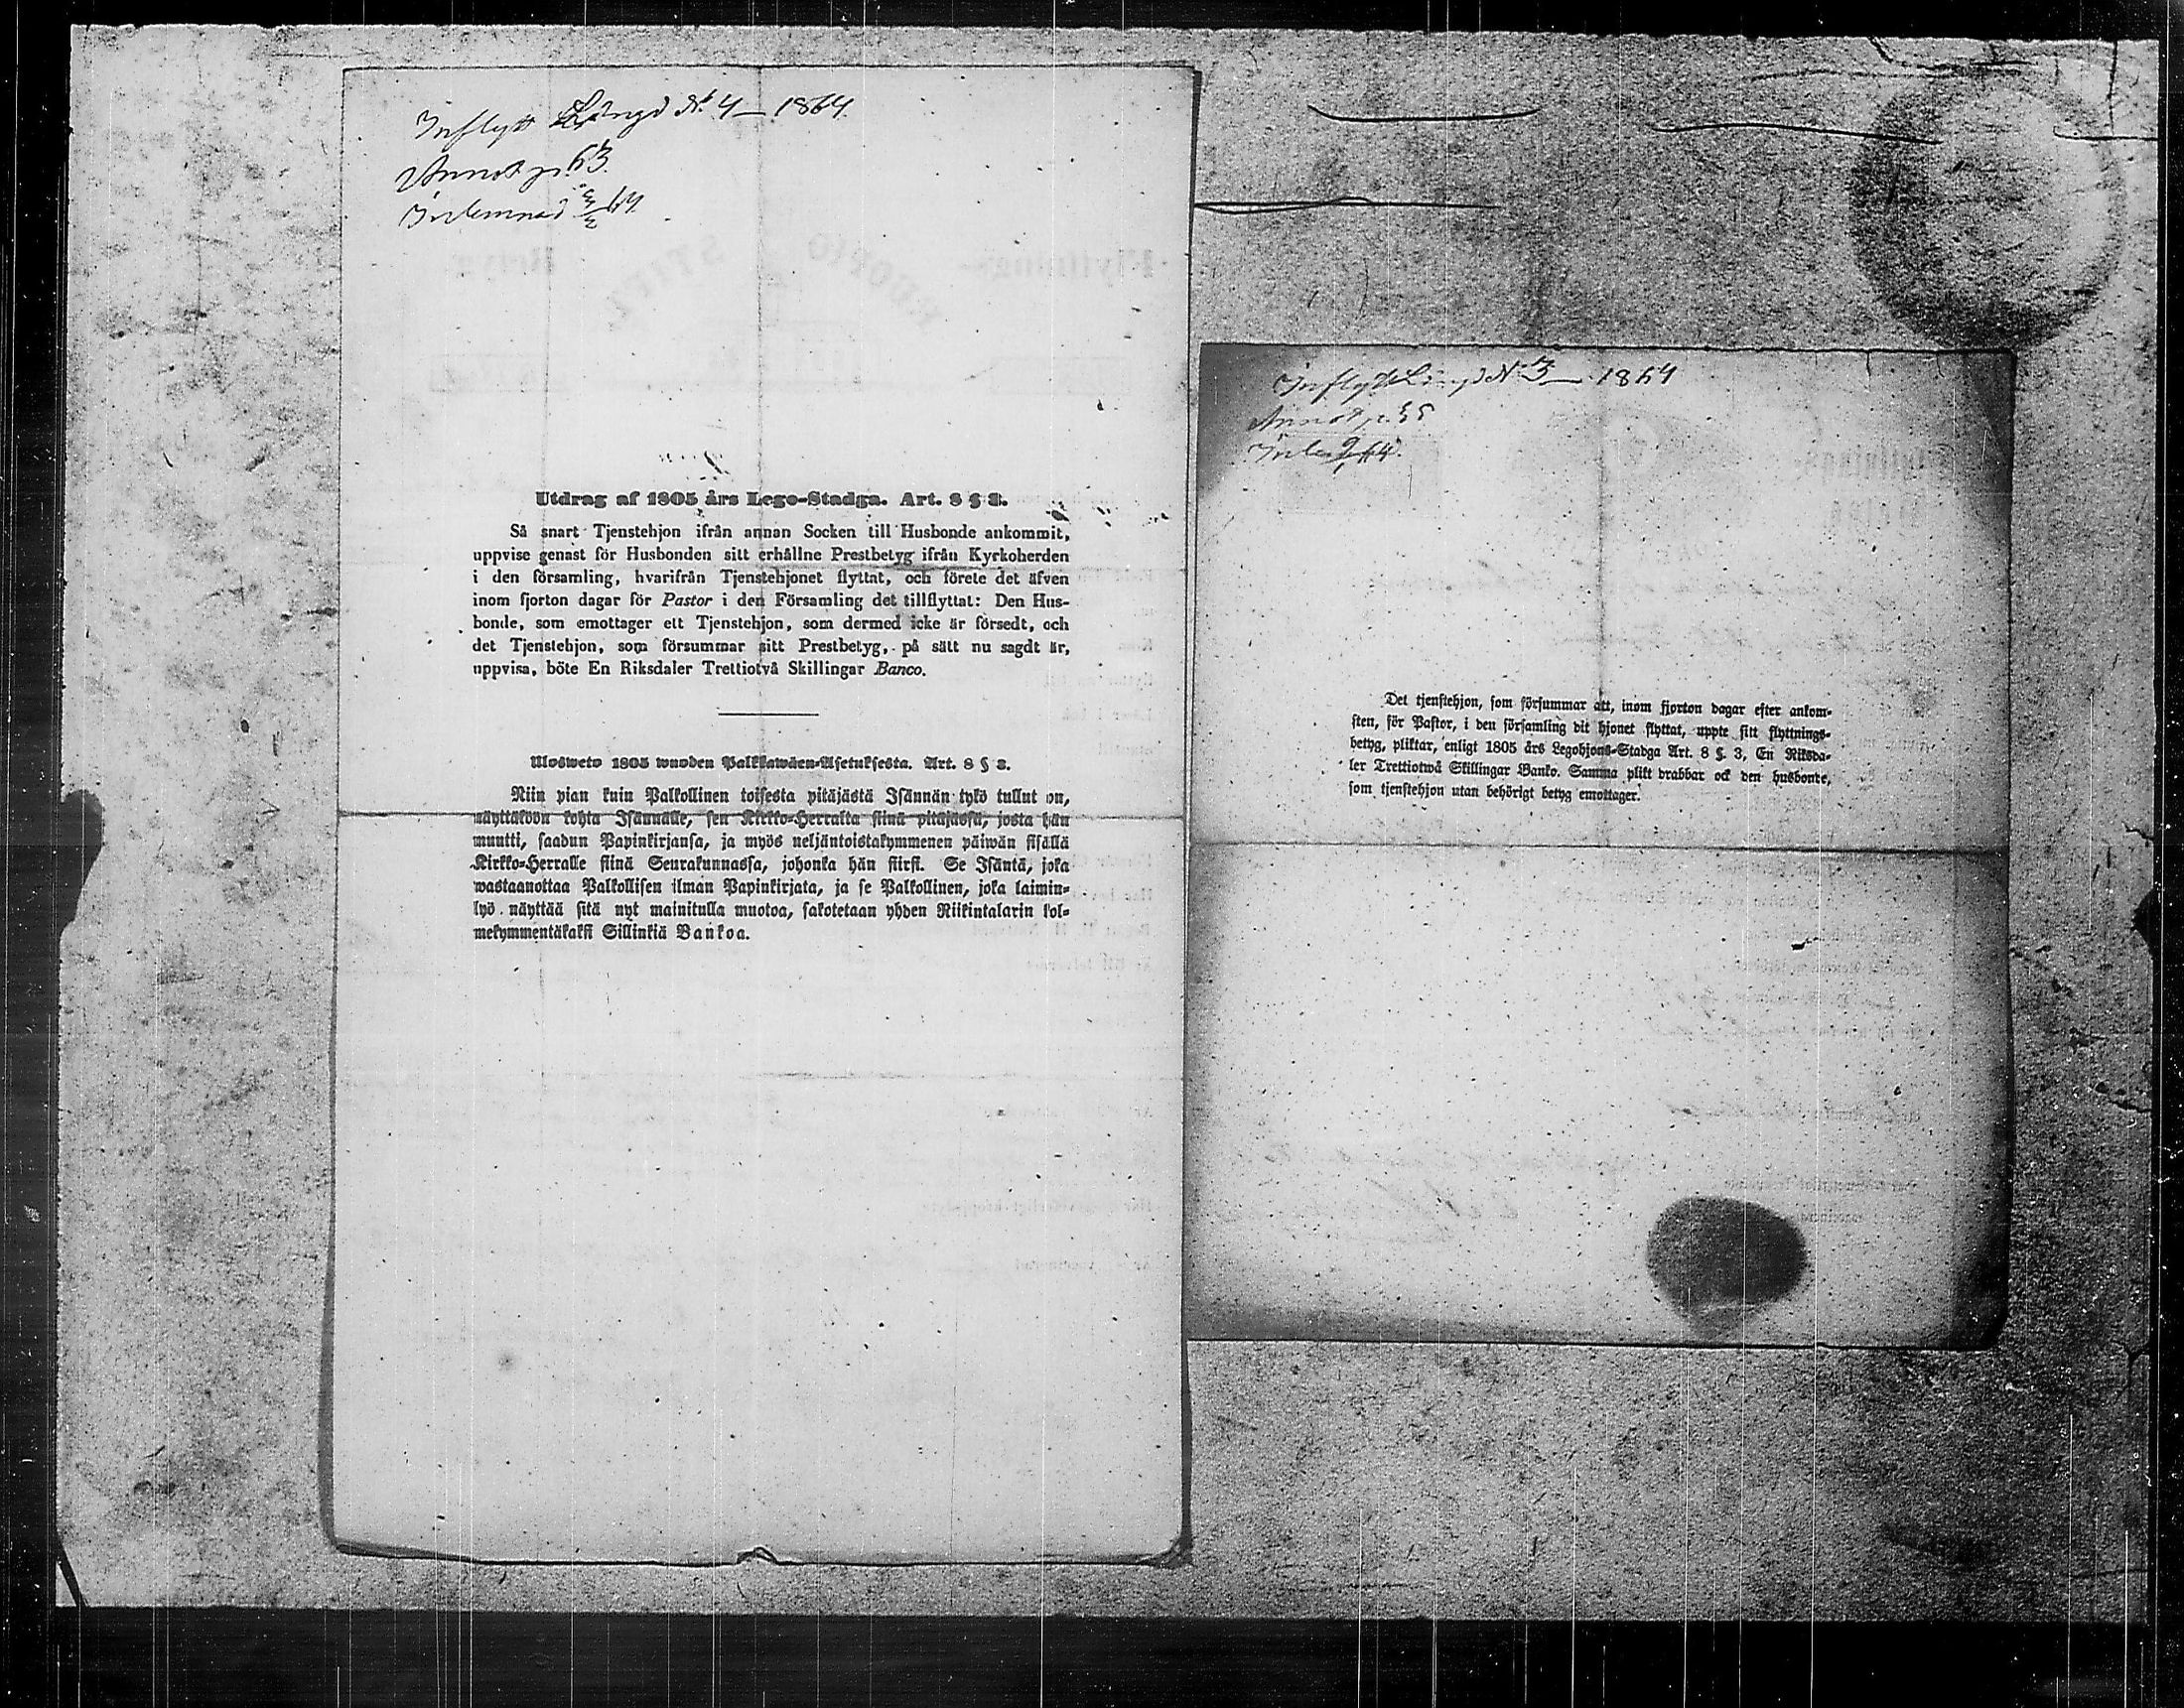 Inflytt Längd N:o 4 — 1864.
Annot p. 63.
Inlemnad 3/2 64.
Utdrag af 1805 års Lego-Stadga. Art. 8 § 3.
Så snart Tjenstehjon ifrån annan Socken till Husbonde ankommit,
uppvise genast för Husbonden sitt erhållne Prestbetyg ifrån Kyrkoherden
i den församling, hvarifrån Tjenstehjonet flyttat, och förete det äfven
inom fjorton dagar för Pastor i den Församling det tillflyttat: Den Hus-
bonde, som emottager ett Tjenstehjon, som dermed icke är försedt, och
det Tjenstehjon, som försummar sitt Prestbetyg, på sätt nu sagdt är,
uppvisa, böte En Riksdaler Trettiotvå Skillingar Banco.
Ulosweto 1805 wuoden Palkkawäen-Asetuksesta. Art. 8 § 3.
Niin pian kuin Palkollinen toisesta pitäjästä Isännän tykö tullut on,
näyttäköön kohta Isännälle, sen Kirkko-Herralta siinä pitäjässä, josta hän
muutti, saadun Papinkirjansa, ja myös neljäntoistakymmenen päiwän sisällä
Kirkko-Herralle siinä Seurakunnassa, johonka hän siirsi. Se Isäntä, joka
wastaanottaa Palkollisen ilman Papinkirjata, ja se Palkollinen, joka laimin-
lyö näyttää sitä nyt mainitulla muotoa, sakotetaan yhden Riikintalarin kol-
mekymmentäkaksi Sillinkiä Bankoa.
Inflytt Längd N:o 3 — 1864
Annot p.
Det tjenstehjon, som försummar att, inom fjorton dagar efter ankom-
sten, för Pastor, i den församling dit hjonet flyttat, uppte sitt flyttnings-
betyg, pliktar, enligt 1805 års Legohjons-Stadga Art. 8 §. 3, En Riksda-
ler Trettiotwå Skillingar Banko. Samma plikt drabbar ock den husbonde,
som tjenstehjon utan behörigt betyg emottager.